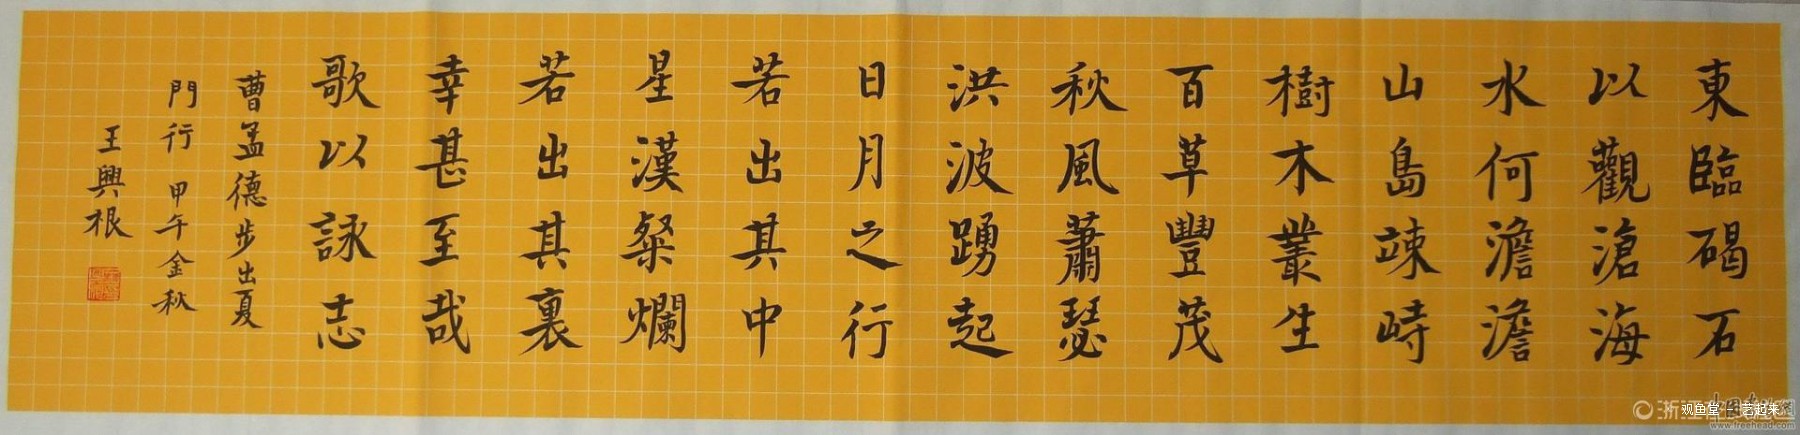 東臨碣石
以觀滄海
水何澹澹
山島竦峙
樹木叢生
百草豐茂
秋風蕭瑟
洪波踴起
日月之行
若出其中
星漢粲爛
若出其裏
幸甚至哉
歌以詠志
曹孟德步出夏
門行 甲午金秋
王興根
浙江
观鱼堂 - 艺起来
www.freehead.com